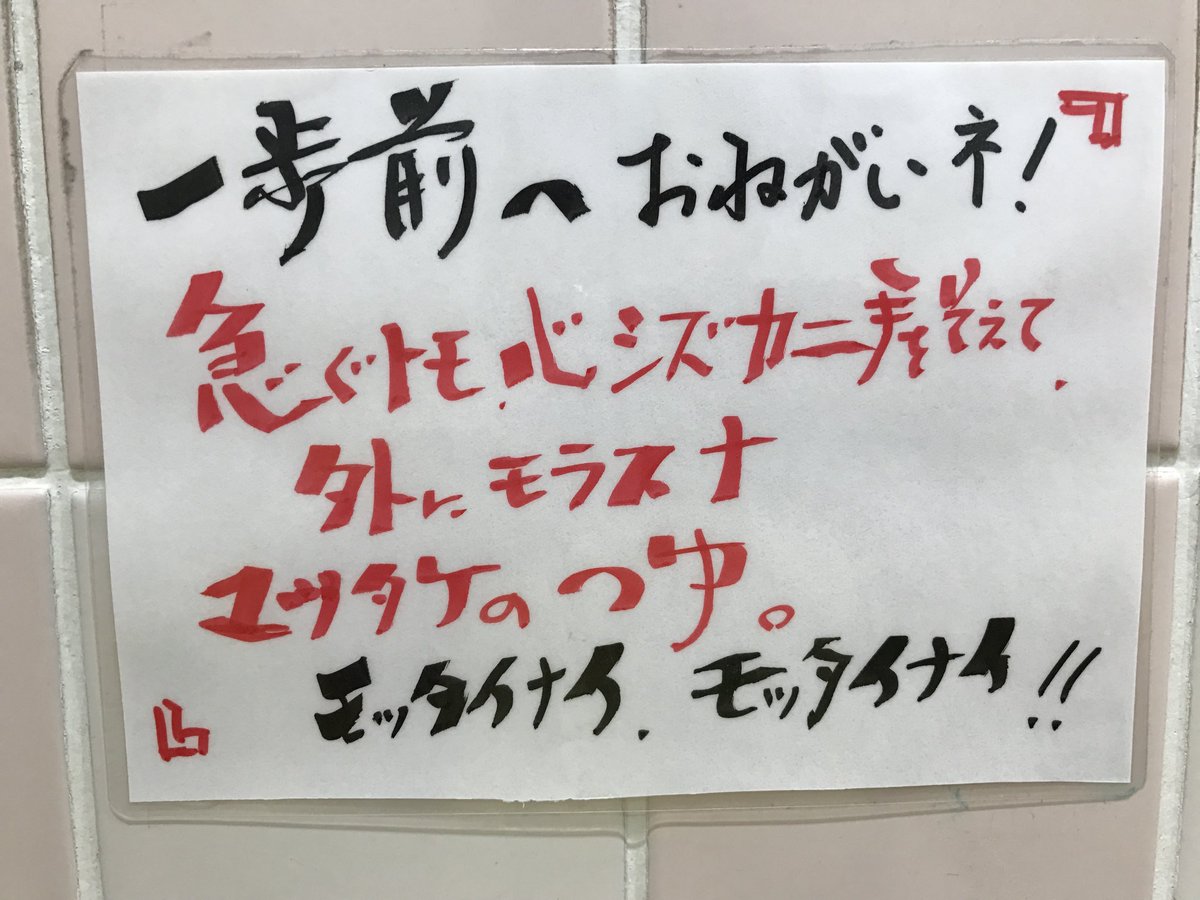 一歩前へ おねがいネ!
急ぐトモ、心シズカニ手をそえて、
外にモラスナ
マツタケのつゆ。
モッタイナイ、モッタイナイ!!